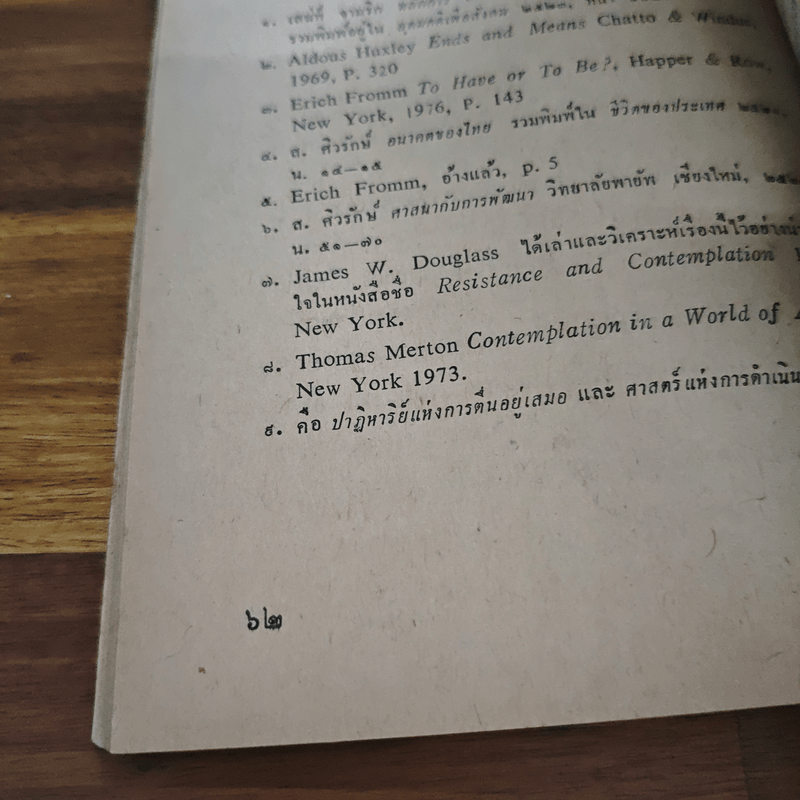 ๑. เสน่ห์ จามริก
รวมพิมพ์อยู่ใน อุดมคติเพื่อสังคม ๒๕๒๓,
๒. Aldous Huxley Ends and Means Chatto & Windus,
1969, P. 320
๓. Erich Fromm To Have or To Be?, Happer & Row,
New York, 1976, p. 143
๔. ส. ศิวรักษ์ อนาคตของไทย รวมพิมพ์ใน ชีวิตของประเทศ
น. ๑๔—๑๕
๕. Erich Fromm, อ้างแล้ว, p. 5
๖. ส. ศิวรักษ์ ศาสนากับการพัฒนา วิทยาลัยพายัพ เชียงใหม่,
น. ๕๑—๗๐
๗. James W. Douglass ได้เล่าและวิเคราะห์เรื่องนี้ไว้อย่าง
ใจในหนังสือชื่อ Resistance and Contemplation
New York.
๘. Thomas Merton Contemplation in a World of
New York 1973.
๙. คือ ปาฏิหาริย์แห่งการตื่นอยู่เสมอ และ ศาสตร์แห่งการดำเนิน
๖๒